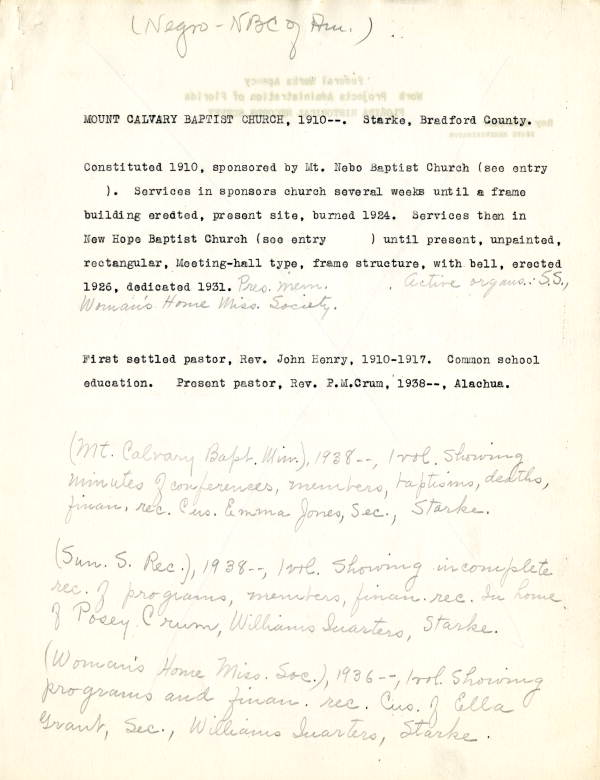 (Negro - NBC of Am.)
Federal Works Agency
Work Projects Administration of Florida
MOUNT CALVARY BAPTIST CHURCH, 1910--. Starke, Bradford County.
Constituted 1910, sponsored by Mt. Nebo Baptist Church (see entry
). Services in sponsors church several weeks until a frame
building erected, present site, burned 1924. Services then in
New Hope Baptist Church (see entry ) until present, unpainted,
rectangular, Meeting-hall type, frame structure, with bell, erected
1926, dedicated 1931. Pres. mem. . Active organs.: S.S.,
Woman's Home Miss. Society.
First settled pastor, Rev. John Henry, 1910-1917. Common school
education. Present pastor, Rev. P.M.Crum, 1938--, Alachua.
(Mt. Calvary Bapt. Min.), 1938--, 1 vol. Showing
minutes of conferences, members, baptisms, deaths,
finan. rec. Cus. Emma Jones, Sec., Starke.
(Sun. S. Rec.), 1938--, 1 vol. Showing incomplete
rec. of programs, members, finan. rec. In home
of Posey Crum, Williams Quarters, Starke.
(Woman's Home Miss. Soc.), 1936--, 1 vol. Showing
programs and finan. rec. Cus. of Ella
Grant, Sec., Williams Quarters, Starke.